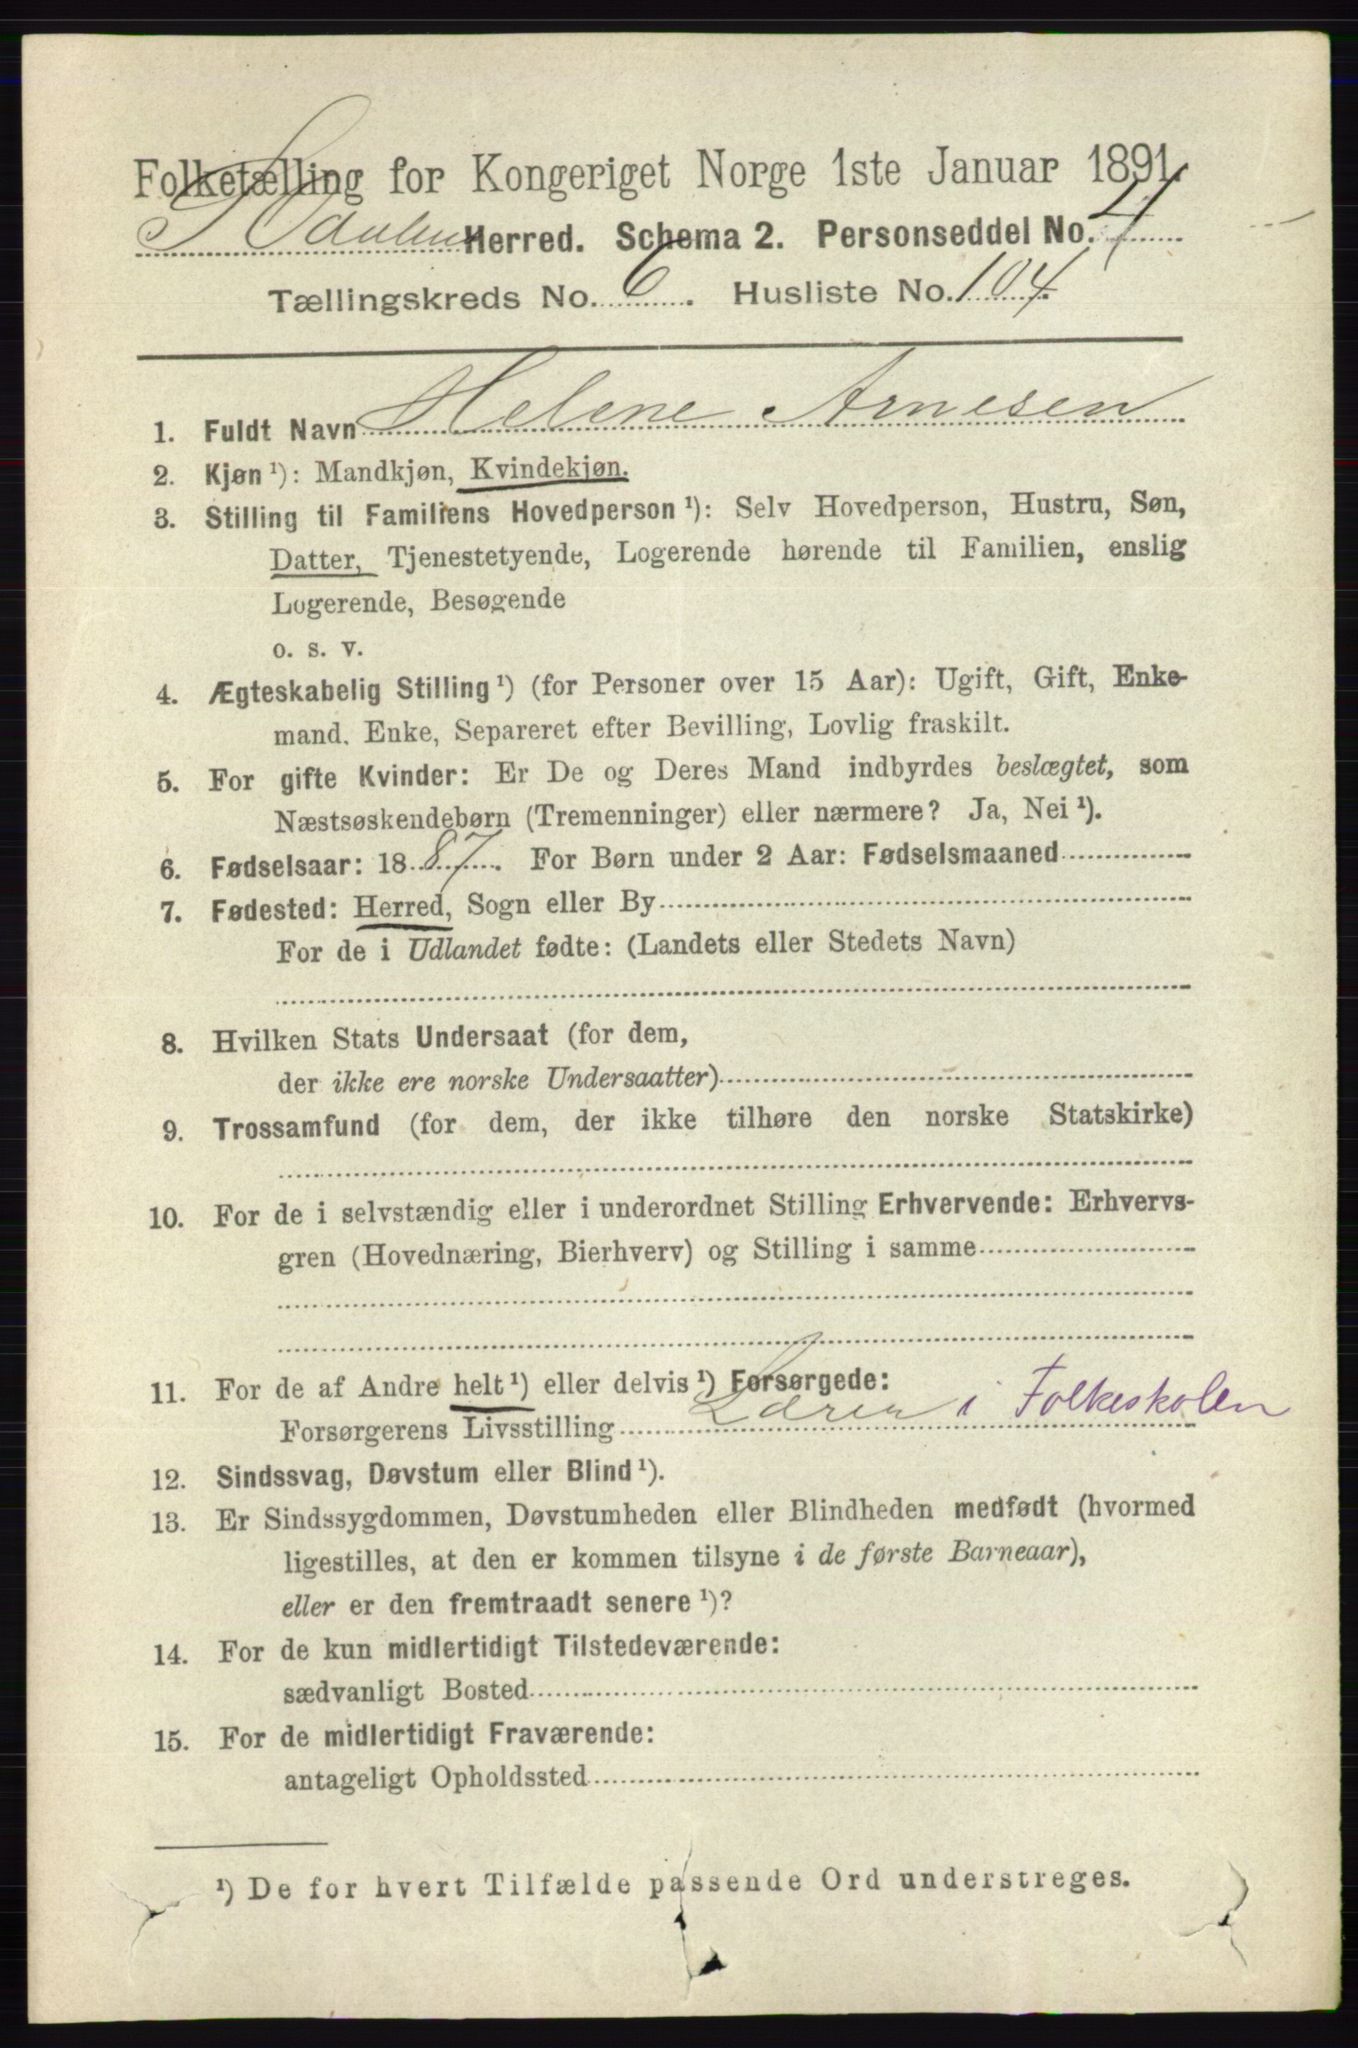 Folketælling for Kongeriget Norge 1ste Januar 1891.
S Odalen Herred. Schema 2. Personseddel No. 4
Tællingskreds No. 6. Husliste No. 104.
1. Fuldt Navn Helene Arnesen
2. Kjøn ¹): Mandkjøn, Kvindekjøn.
3. Stilling til Familiens Hovedperson ¹): Selv Hovedperson, Hustru, Søn,
Datter, Tjenestetyende, Logerende hørende til Familien, enslig
Logerende, Besøgende
o. s. v.
4. Ægteskabelig Stilling ¹) (for Personer over 15 Aar): Ugift, Gift, Enke-
mand. Enke, Separeret efter Bevilling, Lovlig fraskilt.
5. For gifte Kvinder: Er De og Deres Mand indbyrdes beslægtet, som
Næstsøskendebørn (Tremenninger) eller nærmere? Ja, Nei ¹).
6. Fødselsaar: 1887. For Børn under 2 Aar: Fødselsmaaned
7. Fødested: Herred, Sogn eller By
For de i Udlandet fødte: (Landets eller Stedets Navn)
8. Hvilken Stats Undersaat (for dem,
der ikke ere norske Undersaatter)
9. Trossamfund (for dem, der ikke tilhøre den norske Statskirke)
10. For de i selvstændig eller i underordnet Stilling Erhvervende: Erhvervs-
gren (Hovednæring, Bierhverv) og Stilling i samme
11. For de af Andre helt ¹) eller delvis ¹) Forsørgede:
Forsørgerens Livsstilling Lærer i Folkeskolen
12. Sindssvag, Døvstum eller Blind ¹).
13. Er Sindssygdommen, Døvstumheden eller Blindheden medfødt (hvormed
ligestilles, at den er kommen tilsyne i de første Barneaar),
eller er den fremtraadt senere ¹)?
14. For de kun midlertidigt Tilstedeværende:
sædvanligt Bosted
15. For de midlertidigt Fraværende:
antageligt Opholdssted
¹) De for hvert Tilfælde passende Ord understreges.